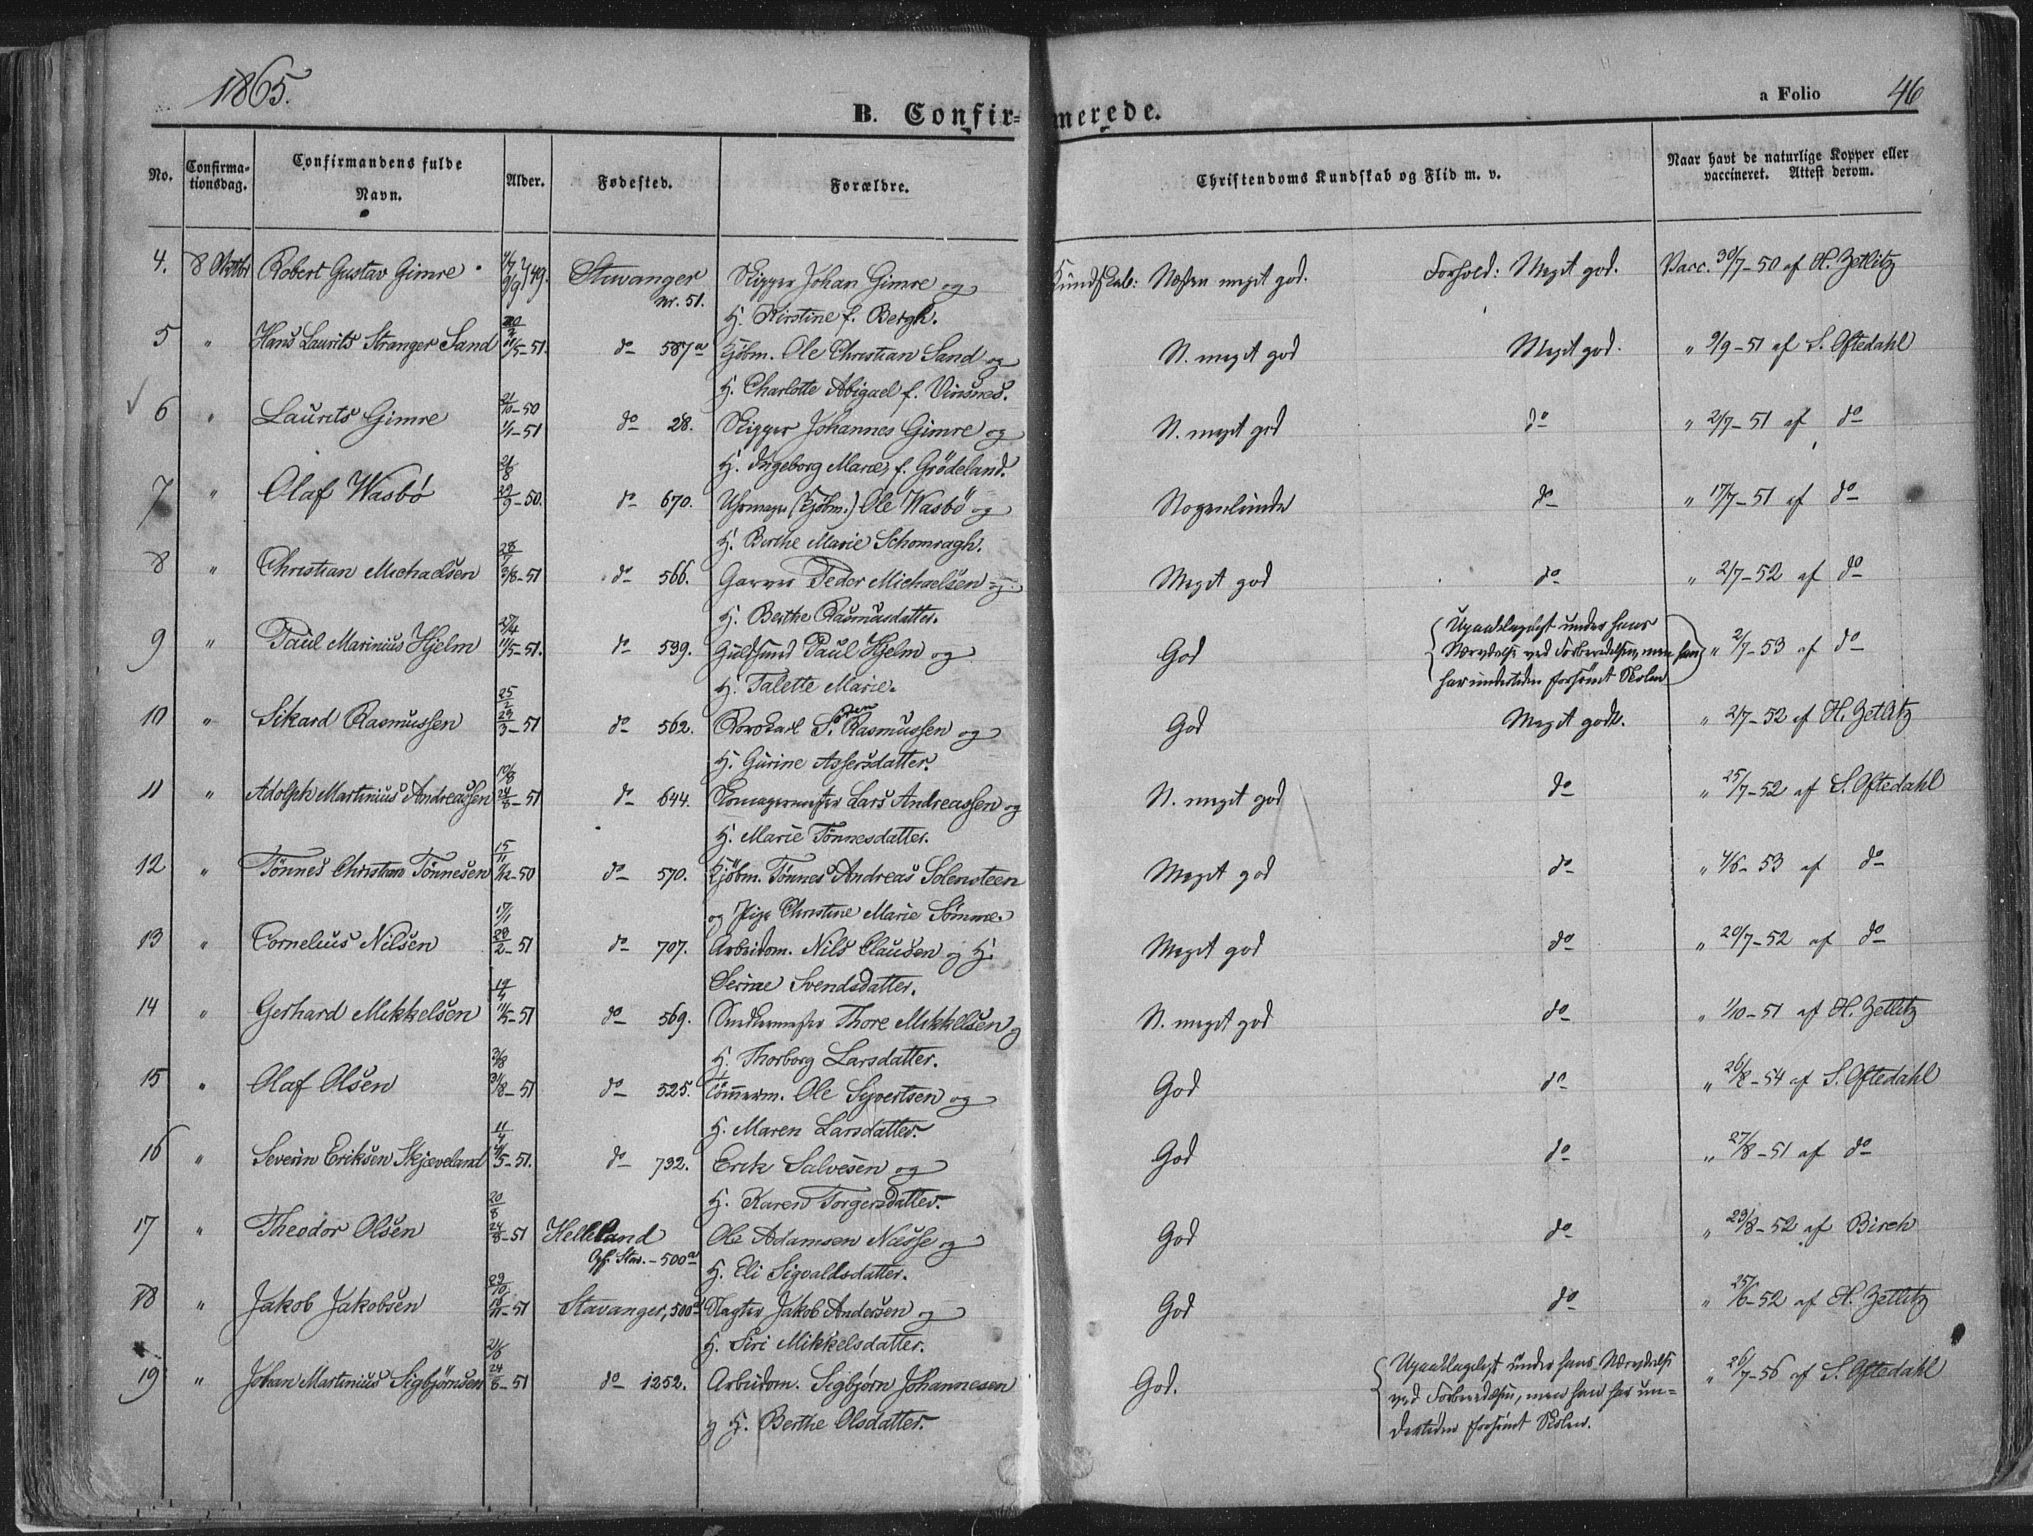 1865.
B. Confir=merede.
a Folio 46
No. Confirma-tionsdag. Confirmandens fulde Navn. Alder. Fødested. Forældre. Christendoms Kundskab og Flid m. v. Naar havt de naturlige Kopper eller vaccineret. Attest derom.
4. 8 Oktbr Robert Gustav Gimre 49. Stavanger Skipper Johan Gimre og Kundskab: Næsten meget god. Forhold: Meget god. Vacc. 30/7-50 af H. Zetlitz
nr. 51. H. Kirstine f. Bergh.
5 " Hans Laurits Stranger Sand 20/2 11/5-51. do 587a Kjøbm. Ole Christian Sand og N. meget god Meget god. " 9/9-51 af S. Oftedahl
H. Charlotte Abigael f. Vinsnes.
6 " Laurits Gimre 31/10-50 1/1-51 do 28. Skipper Johannes Gimre og N. meget god do " 2/7-51 af do
H. Ingeborg Marie, f. Grödeland.
7 " Olaf Wasbø 21/8 22/9-50. do 670. Uhrmager (Kjøbm.) Ole Wasbö og Nogenlunde do " 17/7-51 af do
H. Berthe Marie Schomragh.
8 " Christian Michaelsen 28/7 3/8-51 do 566. Garver Peder Michaelsen og Meget god do " 2/7-52 af do
H. Berthe Rasmusdatter.
9 " Paul Marinius Hjelm 27/4 11/5-51. do 539. Guldsmed Paul Hjelm og God Upaaklageligt under hans " 2/7-53 af do
Nærværelse ved Forberedelsen, men han
H. Talette Marie. har undertiden forsømt Skolen
10 " Sikard Rasmussen 25/2 23/3-51 do 562. Rorskarl Sören Rasmussen og God Meget godt. " 2/7-52 af H. Zetlitz
H. Gurine Assersdatter.
11 " Adolph Martinius Andreassen 10/8 24/8-51 do 644. Skomagermester Lars Andreassen og N. meget god do " 25/7-52 af S. Oftedahl
H. Marie Tönnesdatter.
12 " Tönnes Christian Tönnesen 15/11 1/12-50 do 570. Kjöbm. Tönnes Andreas Solensteen Meget god do " 4/6-53 af do
og Pige Christine Marie Sömme.
13 " Cornelius Nilsen 17/1 28/2-51 do 707. Arbeidsm. Nils Clausen og H. Meget god do " 20/7-52 af do
Serine Svendsdatter.
14 " Gerhard Mikkelsen 19/4 11/5-51 do 569. Snedkermester Thore Mikkelsen og N. meget god do " 1/10-51 af H. Zetlitz
H. Thorborg Larsdatter.
15 " Olaf Olsen 3/8 31/8-51 do 525. Tømmerm. Ole Syvertsen og God do " 26/8-54 af S. Oftedahl
H. Maren Larsdatter.
16 " Severin Eriksen Skjæveland 11/4 11/5-51. do 732. Erik Salvesen og God do " 27/8-51 af do
H. Karen Torgersdatter.
17 " Theodor Olsen 20/8 24/8-51 Helleland Ole Adamsen Nesse og God do " 29/8-52 af Birch
Opf. Stav.-500a H. Eli Sigvaldsdatter.
18 " Jakob Jakobsen 29/10 51 Stavanger, 500a Slagter Jakob Andersen og God do " 25/6-52 af H. Zetlitz
H. Siri Mikkelsdatter.
19 " Johan Martinius Sigbjörnsen 21/6 24/8-51 do 1252. Arbeidsm. Sigbjørn Johannesen God. Upaaklageligt under hans Nærværelse " 26/7-56 af S. Oftedahl
ved Forberedelsen, men han har un-
og H. Berthe Olsdatter. dertiden forsømt Skolen.